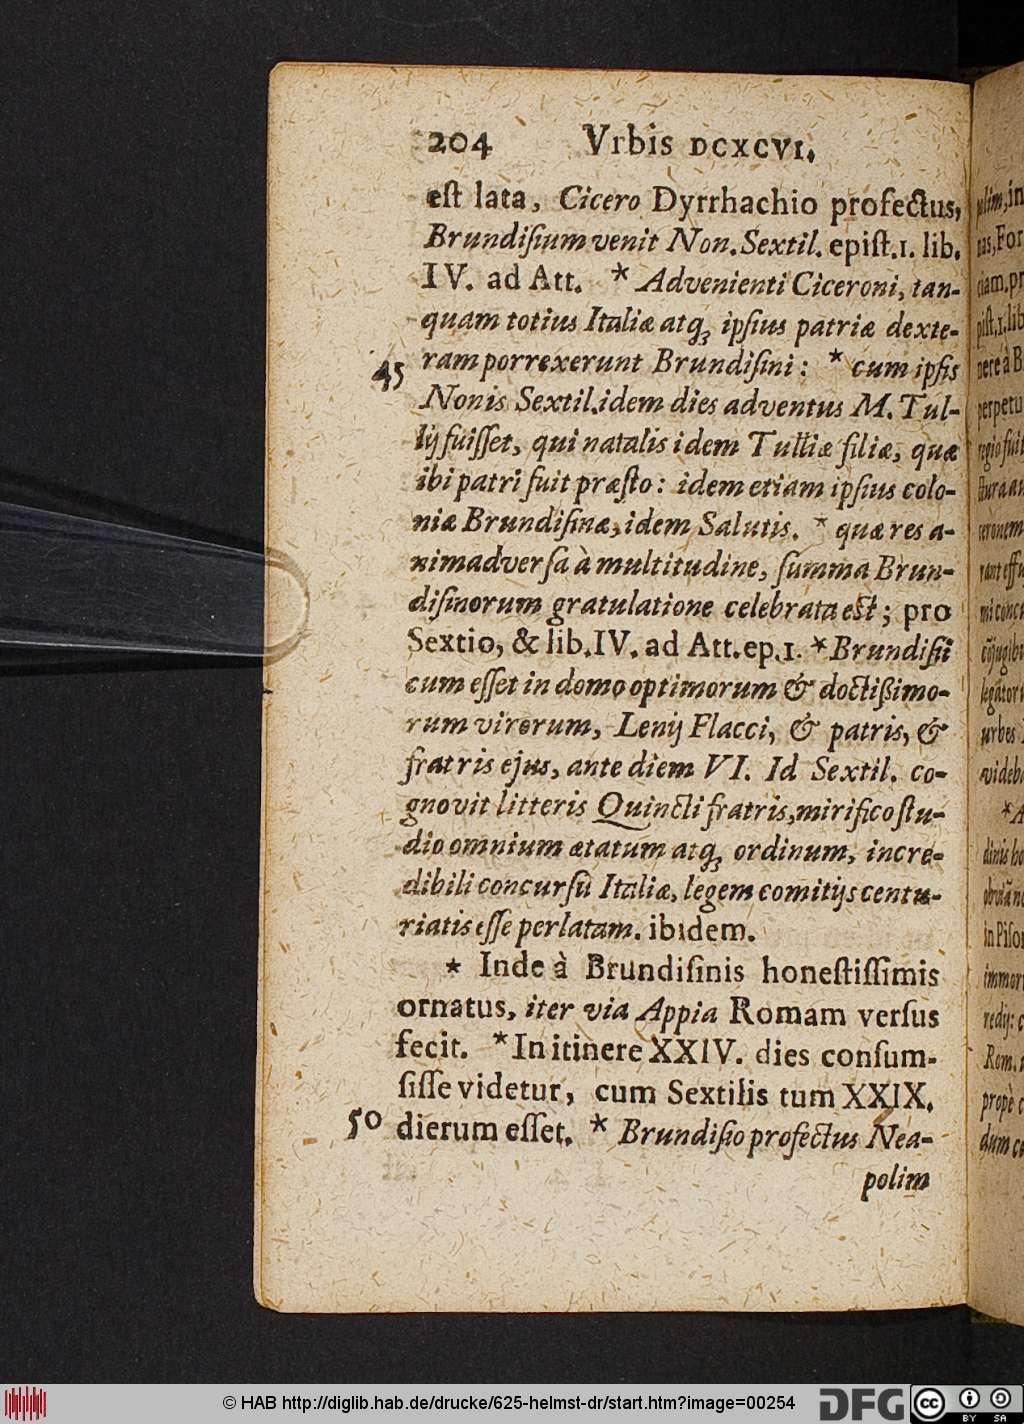 204 Vrbis DCXCVI.
eſt lata, Cicero Dyrrhachio profectus,
Brundiſium venit Non. Sextil. epiſt.1. lib.
IV. ad Att. * Advenienti Ciceroni, tan-
quam totius Italiæ atq; ipſius patriæ dexte-
45 ram porrexerunt Brundiſini: * cum ipſis
Nonis Sextil. idem dies adventus M. Tul-
lij fuiſſet, qui natalis idem Tulliæ filiæ, quæ
ibi patri fuit præſto: idem etiam ipſius colo-
niæ Brundiſinæ, idem Salutis. * quæ res a-
nimadverſa à multitudine, ſumma Brun-
diſinorum gratulatione celebrata eſt; pro
Sextio, & lib. IV. ad Att. ep.1. * Brundiſii
cum eſſet in domo optimorum & doctißimo-
rum virorum, Lenij Flacci, & patris, &
fratris ejus, ante diem VI. Id Sextil. co-
gnovit litteris Quincti fratris, mirifico ſtu-
dio omnium ætatum atq; ordinum, incre-
dibili concurſu Italiæ, legem comitijs centu-
riatis eſſe perlatam. ibidem.
* Inde à Brundiſinis honeſtiſſimis
ornatus, iter via Appia Romam verſus
fecit. * In itinere XXIV. dies conſum-
ſiſſe videtur, cum Sextilis tum XXIX.
50 dierum eſſet. * Brundiſio profectus Nea-
polim
© HAB http://diglib.hab.de/drucke/625-helmst-dr/start.htm?image=00254
DFG
cc
BY SA